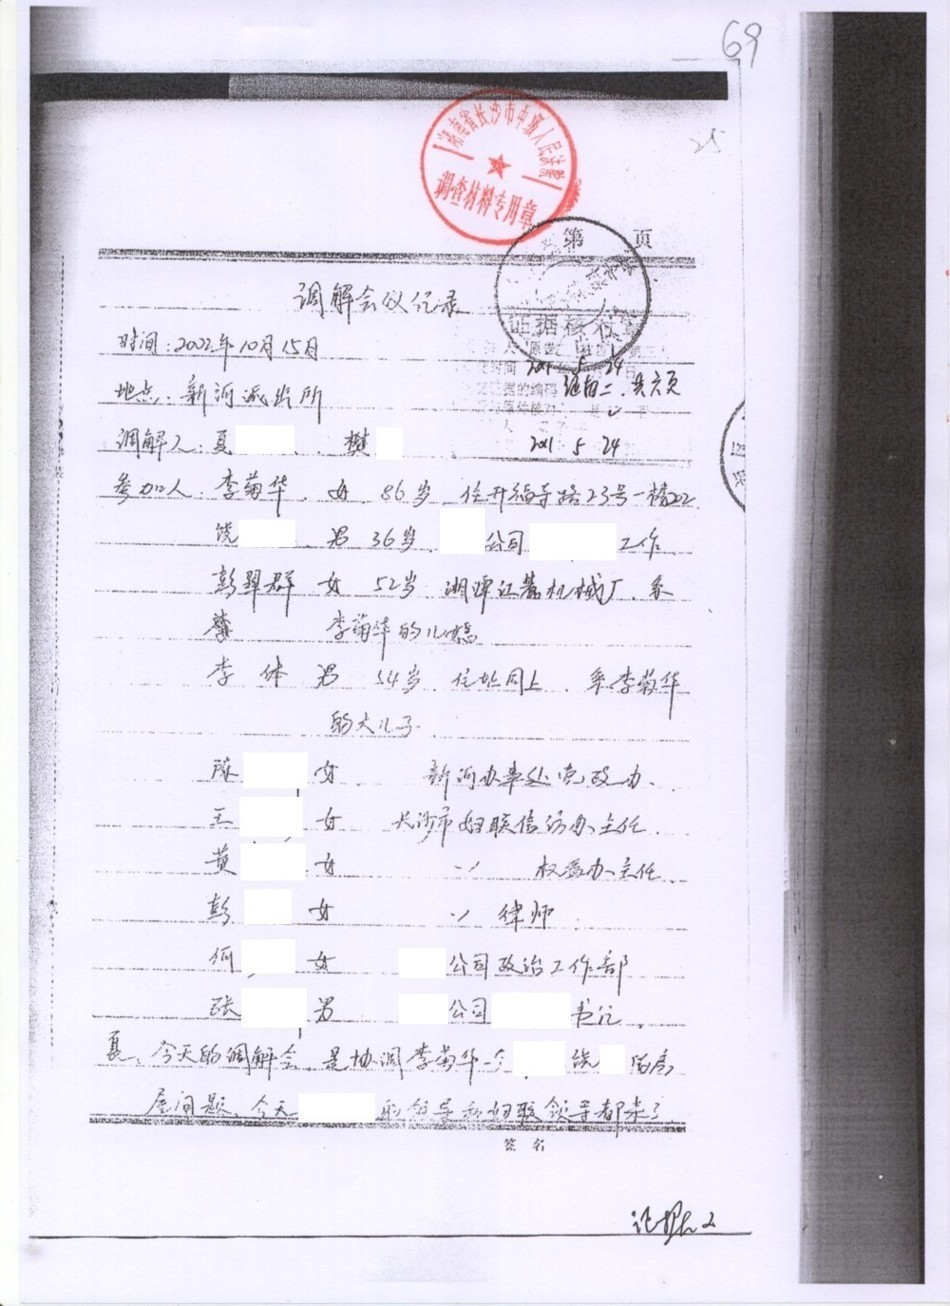 69
25
湖南省长沙市中级人民法院
调查材料专用章
第 页
调解会议记录
证据核
时间:2002年10月15日
2021 5 24
地点:新河派出所
证据二、共六页
调解人:夏 、樊
2021 5 24
参加人:李菊华 女 86岁 住开福寺路23号一栋202
饶 男 36岁 公司 工作
彭翠群 女 52岁 湘潭江麓机械厂、系
李菊华的儿媳
李体 男 54岁 住址同上 系李菊华
的大儿子
陈 女 新河办事处党政办、
王 女 长沙市妇联信访办主任
黄 女 〃 权益办主任、
彭 女 〃 律师
何 女 公司政治工作部
张 男 公司 书记、
夏:今天的调解会、是协调李菊华 饶 的房
屋问题、今天 的领导和妇联领导都来了
签 名
证据2